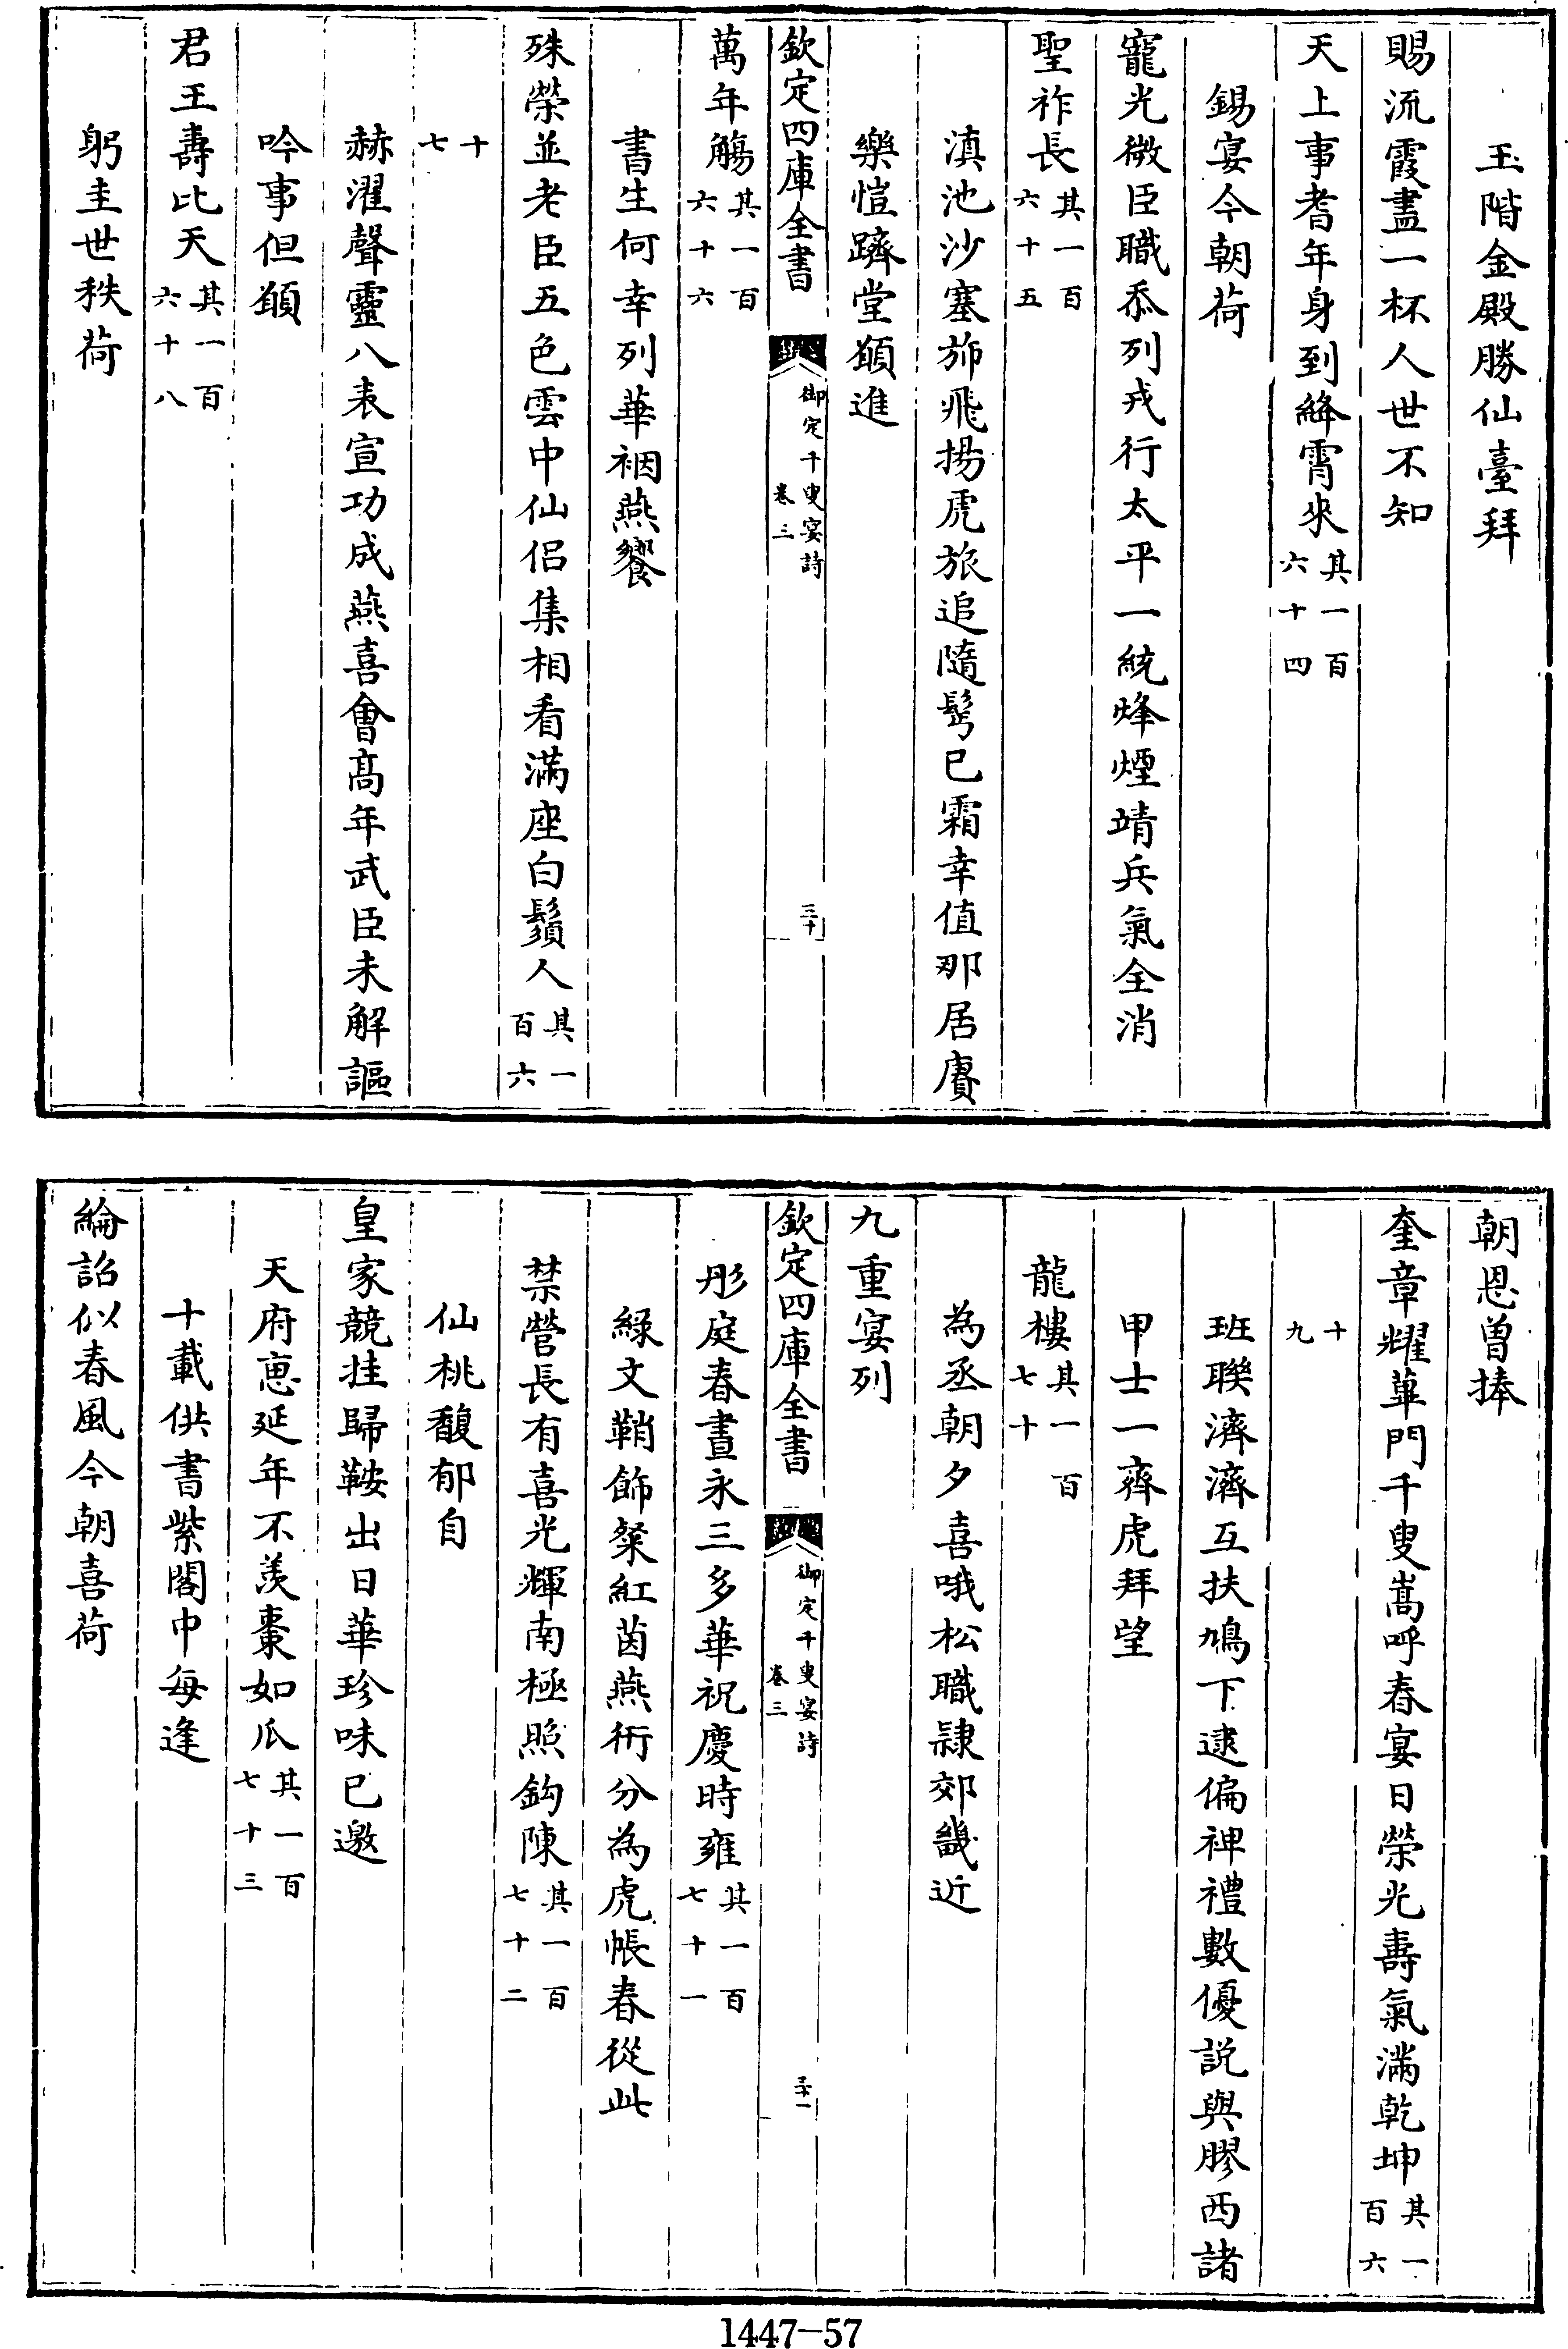 玉階金殿勝仙臺拜
賜流霞盡一杯人世不知
天上事耆年身到絳霄來其一百六十四
錫宴今朝荷
寵光微臣職忝列戎行太平一統烽煙靖兵氣全消
聖祚長其一百六十五
滇池沙塞斾飛揚虎旅追隨髩已霜幸值那居賡
樂愷躋堂願進
欽定四庫全書
御定千叟宴詩
卷三
三十
萬年觴其一百六十六
書生何幸列華裀燕饗
殊榮並老臣五色雲中仙侣集相看滿座白鬚人其一百六
十七
赫濯聲靈八表宣功成燕喜會髙年武臣未解謳
吟事但願
君王壽比天其一百六十八
躬圭世秩荷
朝恩曾捧
奎章耀蓽門千叟嵩呼春宴日榮光壽氣滿乾坤其一百六
十九
班聯濟濟互扶鳩下逮偏裨禮數優説與膠西諸
甲士一齊虎拜望
龍樓其一百七十
為丞朝夕喜哦松職隷郊畿近
九重宴列
欽定四庫全書
御定千叟宴詩
卷三
三十一
彤庭春晝永三多華祝慶時雍其一百七十一
緑文鞘飾粲紅茵燕衎分為虎帳春從此
禁營長有喜光輝南極照鈎陳其一百七十二
仙桃馥郁自
皇家競挂歸鞍出日華珍味已邀
天府恵延年不羨棗如瓜其一百七十三
十載供書紫閣中每逢
綸詔似春風今朝喜荷
1447-57